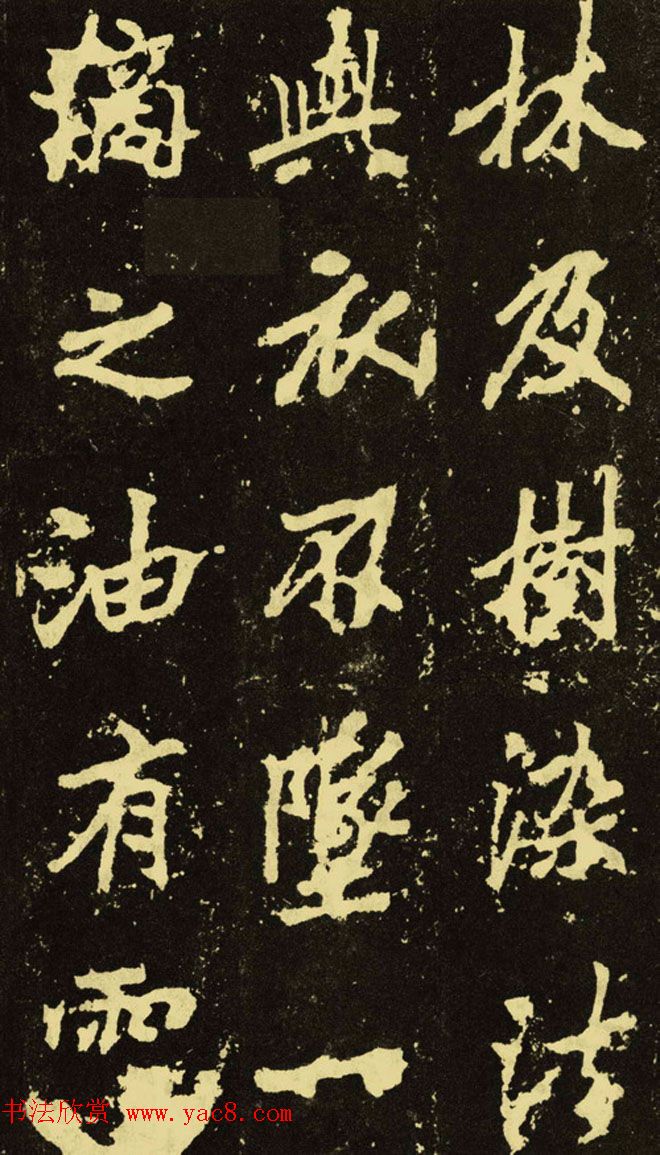 林及樹染法
與衣不墜一
滴之油有
书法欣赏 www.yac8.com